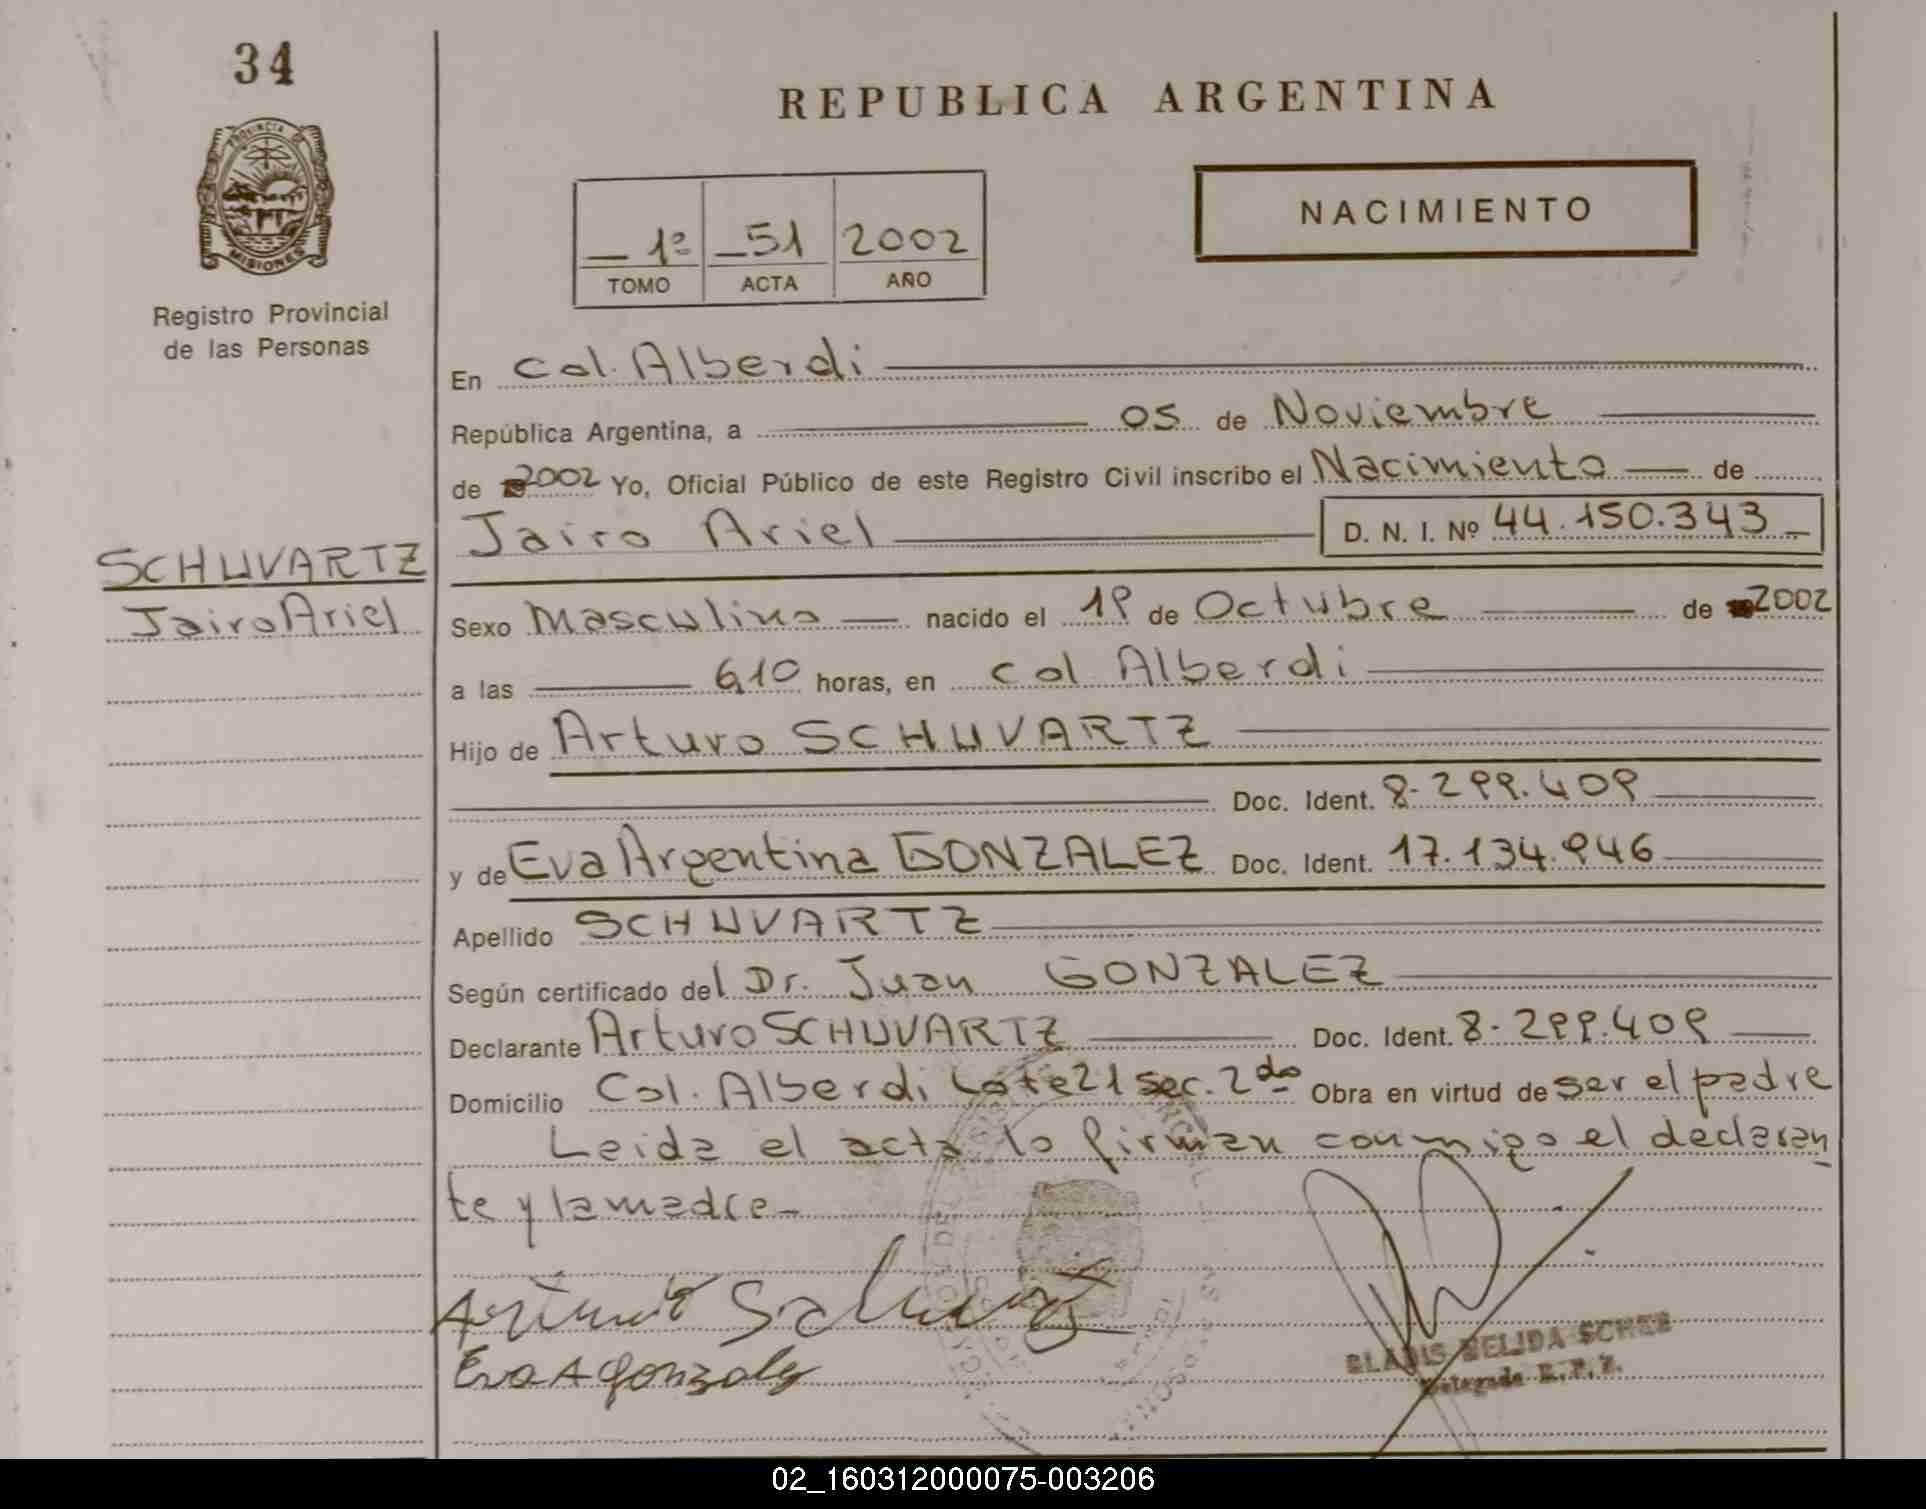 34
PROVINCIA DE
MISIONES
Registro Provincial
de las Personas
REPUBLICA ARGENTINA
NACIMIENTO
1º 51 2002
TOMO ACTA AÑO
En Col. Alberdi
República Argentina, a 05 de Noviembre
de 2002 Yo, Oficial Público de este Registro Civil inscribo el Nacimiento de
Jairo Ariel D. N. I. Nº 44.150.343
SCHUVARTZ
Jairo Ariel
Sexo Masculino nacido el 19 de Octubre de 2002
a las 6,10 horas, en Col Alberdi
Hijo de Arturo SCHUVARTZ
Doc. Ident. 8.299.409
y de Eva Argentina GONZALEZ Doc. Ident. 17.134.946
Apellido SCHUVARTZ
Según certificado del Dr. Juan GONZALEZ
Declarante Arturo SCHUVARTZ Doc. Ident. 8.299.409
Domicilio Col. Alberdi Lote 21 sec. 2do Obra en virtud de ser el padre
Leida el acta lo firman conmigo el declaran
te y la madre
Arturo Schuvartz
Eva A Gonzalez
GLADIS NELIDA
Delegada R.P.P.
02_160312000075-003206